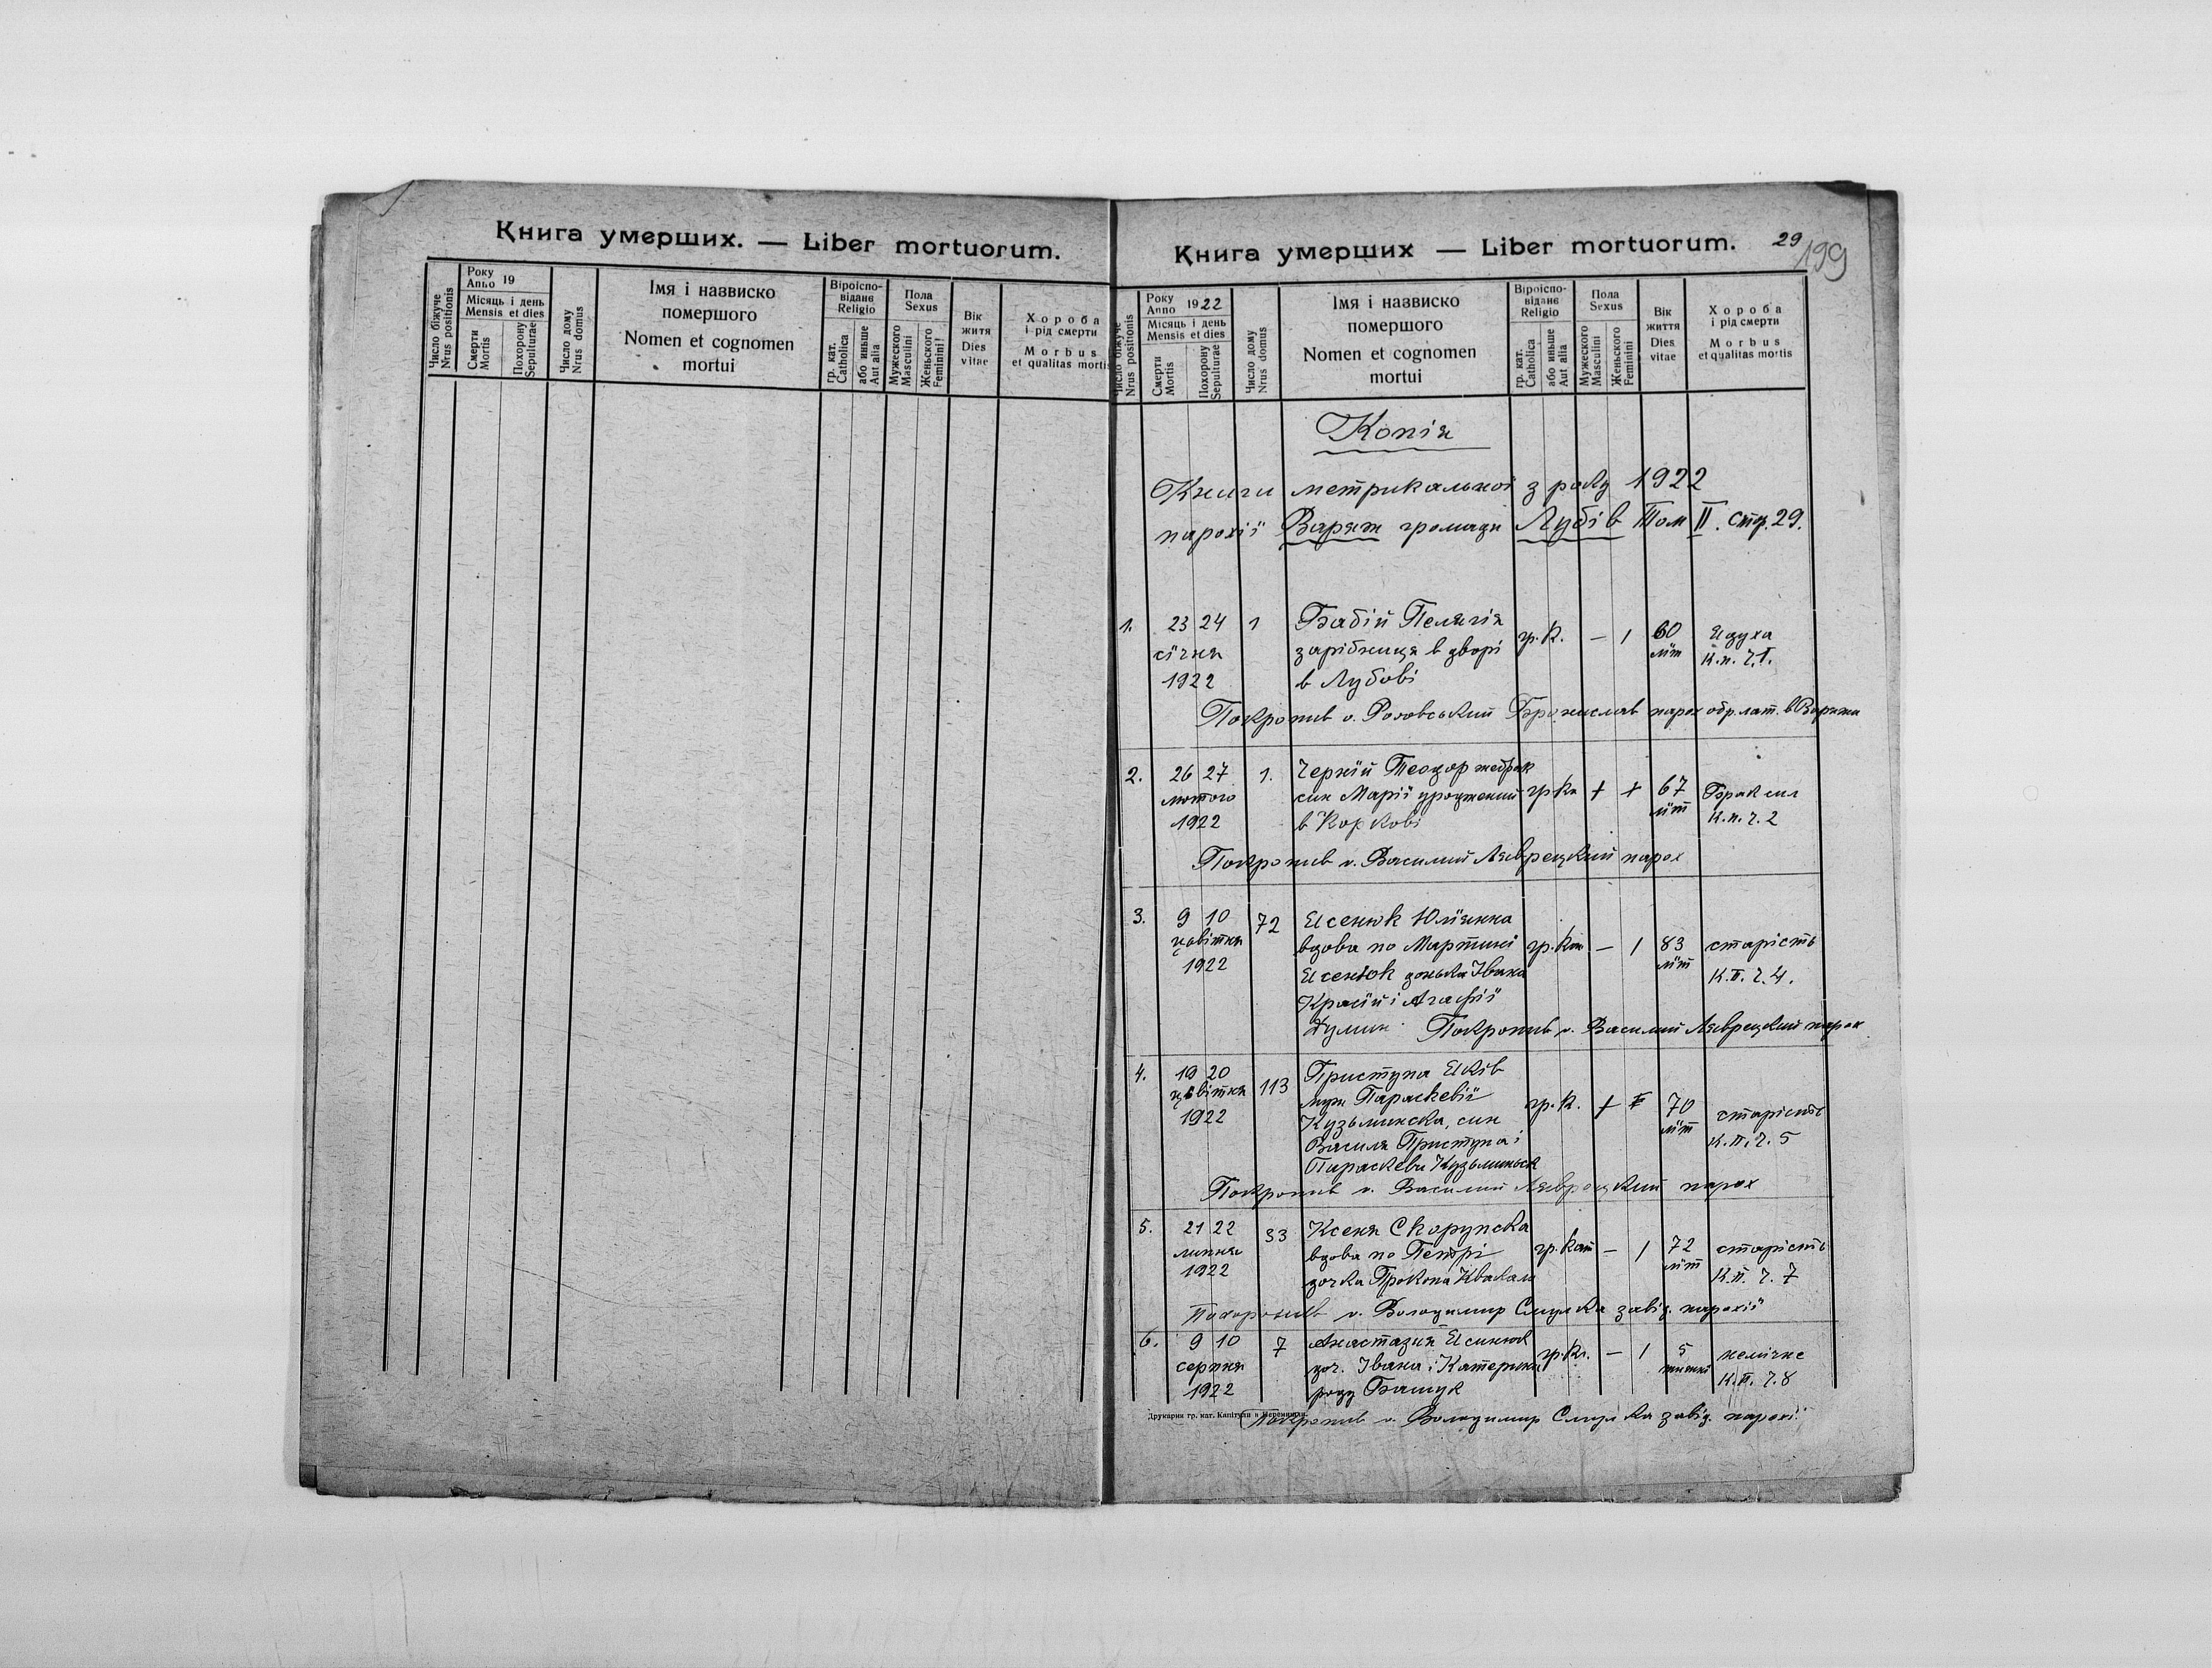 Книга умерших. — Liber mortuorum.
Число біжуче
Nrus positionis
Року
Anno 19
Місяць і день
Mensis et dies
Смерти
Mortis
Похорону
Sepulturae
Число дому
Nrus domus
Імя і назвиско
помершого
Nomen et cognomen
mortui
Віроіспо-
віданє
Religio
гр. кат.
Catholica
або иньше
Aut alia
Пола
Sexus
Мужеского
Masculini
Женьского
Feminini
Вік
житя
Dies
vitae
Хороба
і рід смерти
Morbus
et qualitas mortis
Книга умерших — Liber mortuorum.
29
199
Число біжуче
Nrus positionis
Року
Anno 1922
Місяць і день
Mensis et dies
Смерти
Mortis
Похорону
Sepulturae
Число дому
Nrus domus
Імя і назвиско
помершого
Nomen et cognomen
mortui
Віроіспо-
віданє
Religio
гр. кат.
Catholica
або иньше
Aut alia
Пола
Sexus
Мужеского
Masculini
Женьского
Feminini
Вік
життя
Dies
vitae
Хороба
і рід смерти
Morbus
et qualitas mortis
Копія
Книги метрикальної з року 1922
парохії Варяж громади Лубів Том II. стр. 29.
1. 23 24 1 Бабій Пелагія
січня зарібниця в дворі гр. к. — 1 60 Ядуха
1922 в Лубові літ К.п. ч. 1.
Покропив о. Розовський Броніслав парох обр. лат. в Варяжи
2. 26 27 1. Черній Теодор жебрак
лютого син Марії уроджений гр. к. + + 67 Брак сил
1922 в Коркові літ К.п. ч. 2
Покропив о. Василий Лаврецкий парох
3. 9 10 72 Ясенюк Юліянна
цвітня вдова по Мартині гр. кат — 1 83 старість
1922 Ясенюк донька Івана літ К.п. ч. 4.
Красій і Агафії
Думин Покропив о. Василий Лаврецкий парох
4. 19 20 113 Приступа Яків
цвітня муж Параскевії гр. к. + 70 старість
1922 Кузьминска, син літ К.п. ч. 5
Василя Приступа і
Параскеви Кузьминьск
Покропив о. Василий Лаврецкий парох
5. 21 22 33 Ксеня Скорупска
липня вдова по Петрі гр. кат — 1 72 старість
1922 дочка Прокопа літ К.п. ч. 7
Похоронив о. Володимир завід. парохії
6. 9 10 7 Анастазия Ясинюк
серпня доч. Івана і Катерини гр. к. — 1 5
1922 роду Башук К.п. ч. 8
Друкарня гр. кат. Капітули в Перемишли.
Покропив о. Володимир завід. парохії